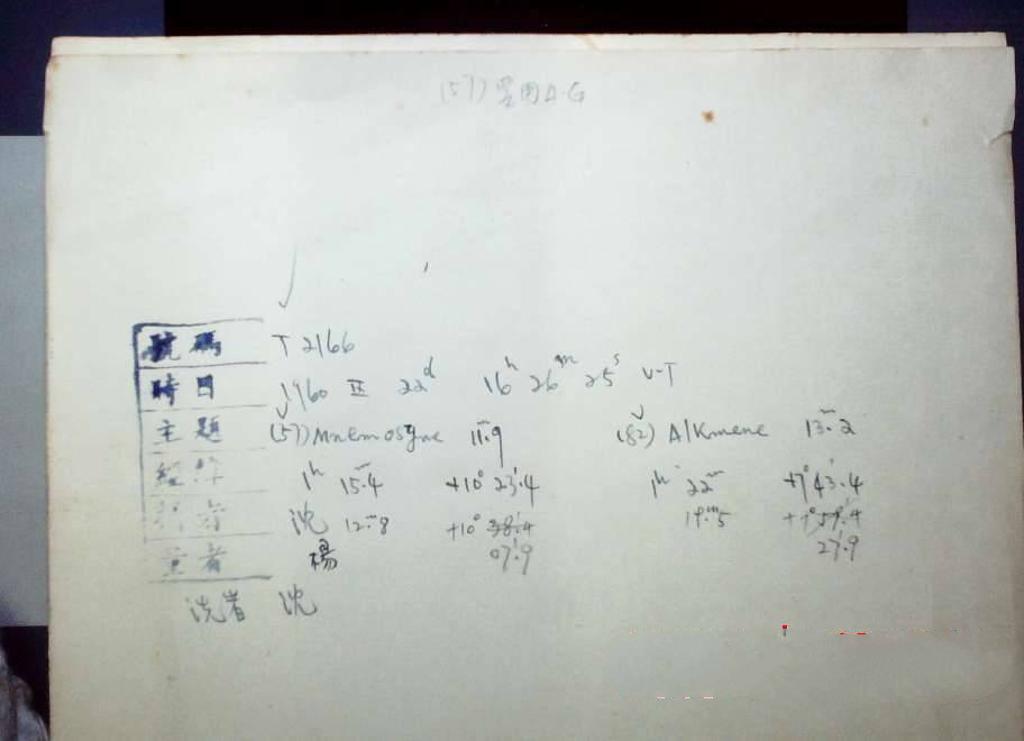 (57) 星圖 A.G
號碼 T 2166
時日 1960 IX 22d 16h 26m 25s U.T
主題 (57) Mnemosyne 11m.9 (82) Alkmene 13m.2
1h 15m.4 +10° 23'.4 1h 22m +7° 43'.4
沈 12m.8 +10° 38'.4 19m.5 +7° 59'.4
量者 楊 07'.9 27'.9
洗者 沈